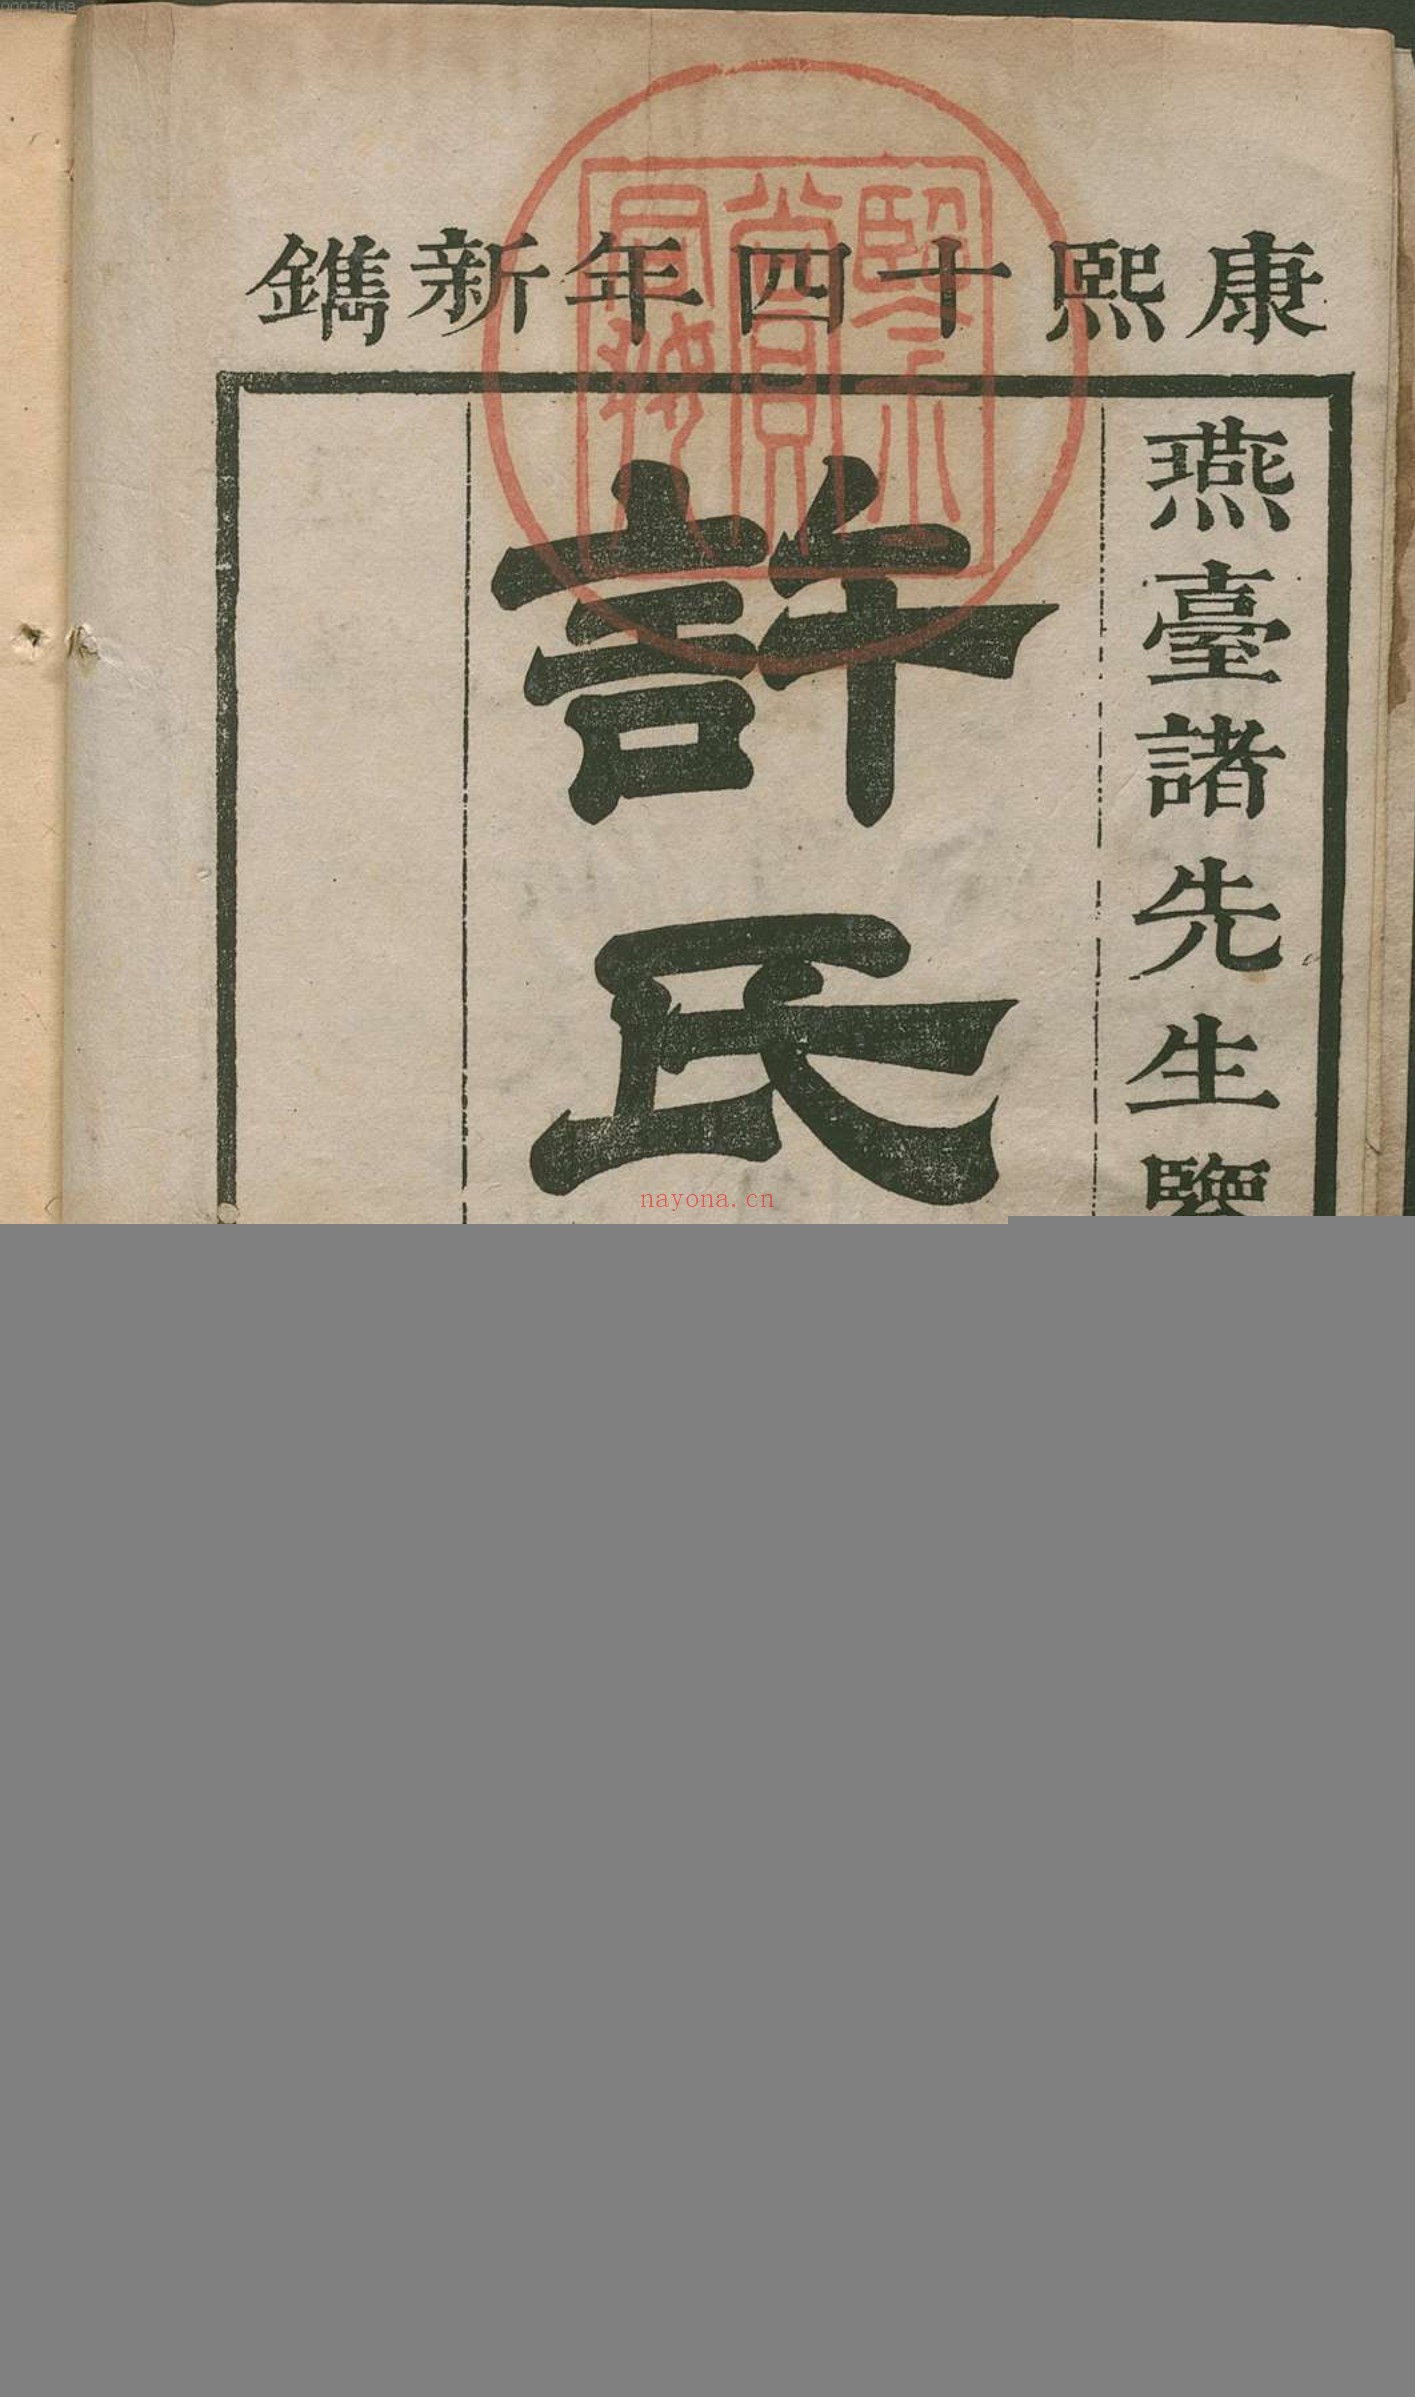 康熙十四年新鐫
燕臺諸先生鑒
許氏
nayona.cn
00073468